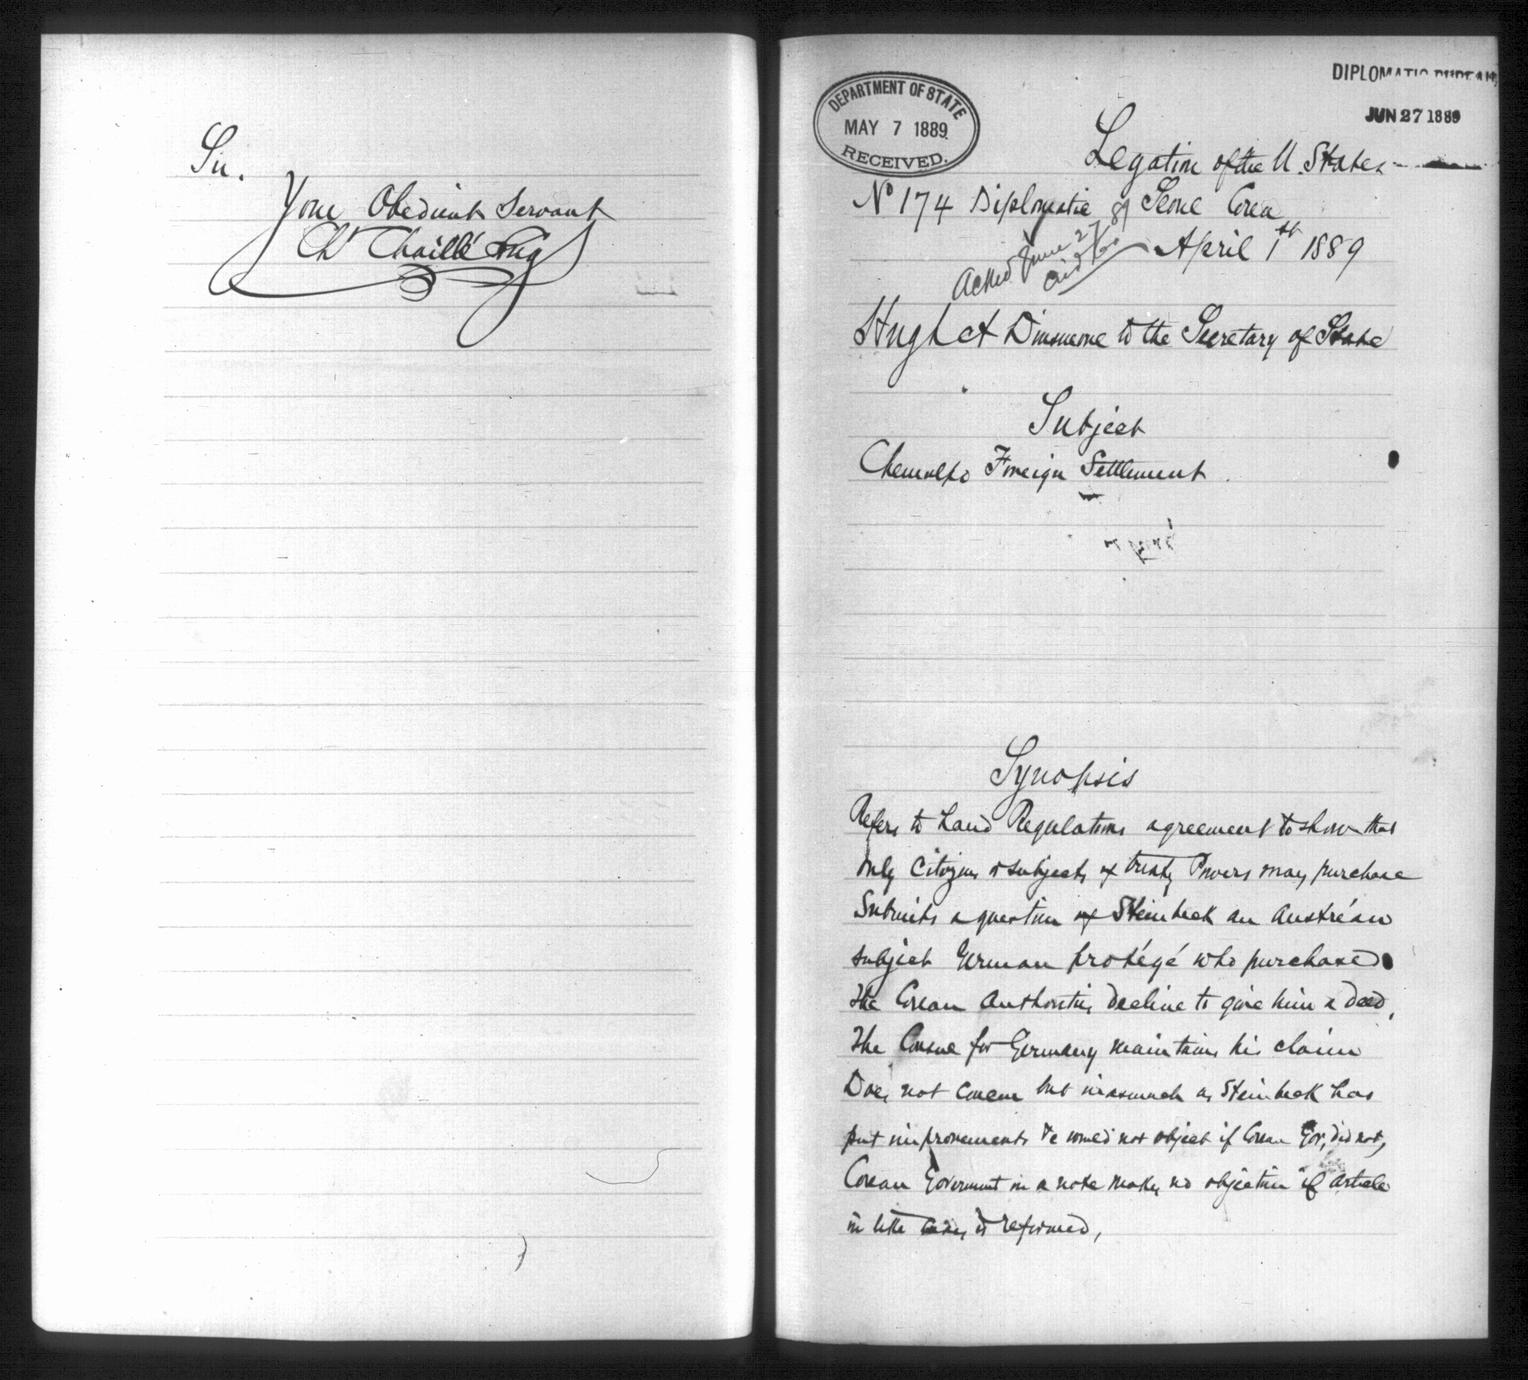 Sir.
Your Obedient Servant
Ch Chaillé Long
DEPARTMENT OF STATE
MAY 7 1889
RECEIVED.
DIPLOMATIC BUREAU
JUN 27 1889
Legation of the U. States
No 174 Diplomatic Seoul Corea
April 1st 1889
Acked June 27/89
Hugh A Dinsmore to the Secretary of State
Subject
Chemulpo Foreign Settlement.
Synopsis
Refers to Land Regulations agreement to show that
only Citizens & subjects of treaty Powers may purchase
Submits a question of Steinbeck an Austrian
subject German protégé who purchased
The Corean Authorities decline to give him a deed,
The Consul for Germany maintains his claim
Does not concur but inasmuch as Steinbeck has
put improvements &c would not object if Corean Gov, did not,
Corean Government in a note makes no objection if Article
in like cases is reformed,